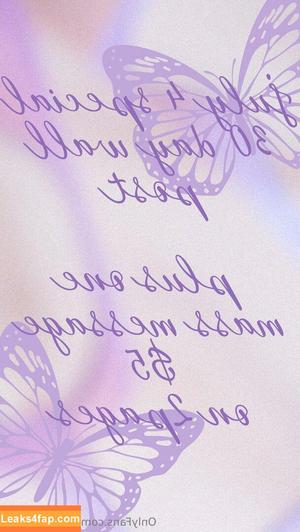 july 4 special
30 day wall
post
plus one
mass message
$5
on 2pages
Leaks4fap.com
OnlyFans.com